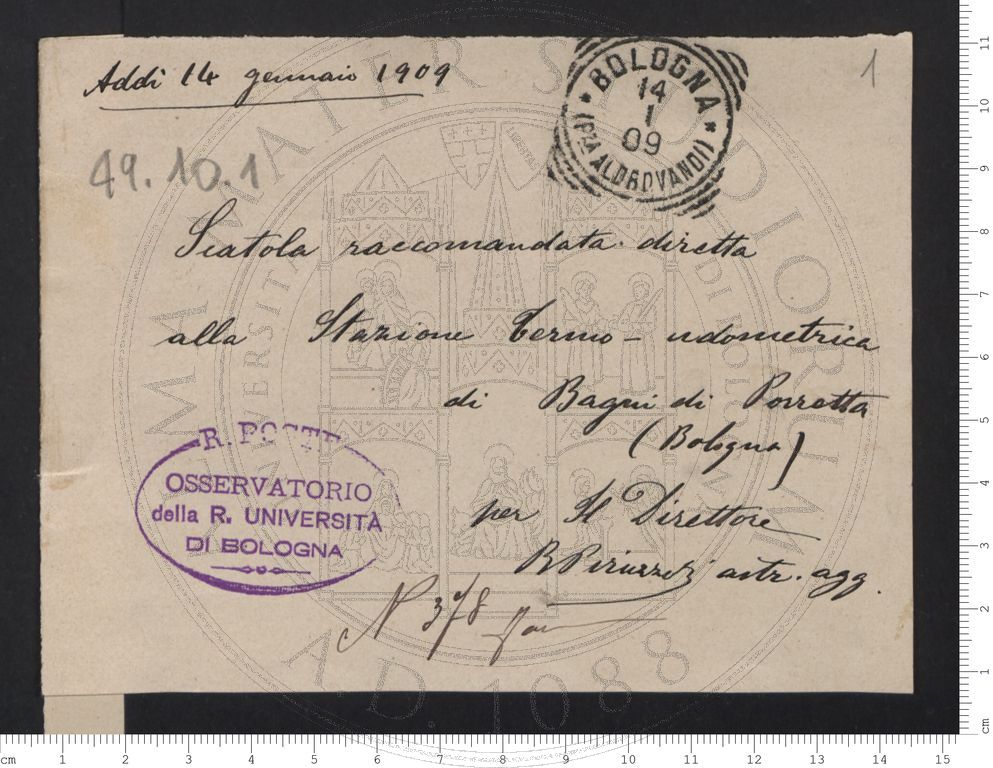 Addì 14 gennaio 1909
1
BOLOGNA
14
1
09
(PZA ALDROVANDI)
49.10.1
Scatola raccomandata diretta
alla Stazione Termo - udometrica
di Bagni di Porretta
(Bologna)
R. POSTE
OSSERVATORIO
della R. UNIVERSITÀ
DI BOLOGNA
per Il Direttore
astr. agg.
N 378
ALMA MATER STUDIORUM
A.D. 1088
cm 1 2 3 4 5 6 7 8 9 10 11 12 13 14 15
11
10
9
8
7
6
5
4
3
2
1
cm